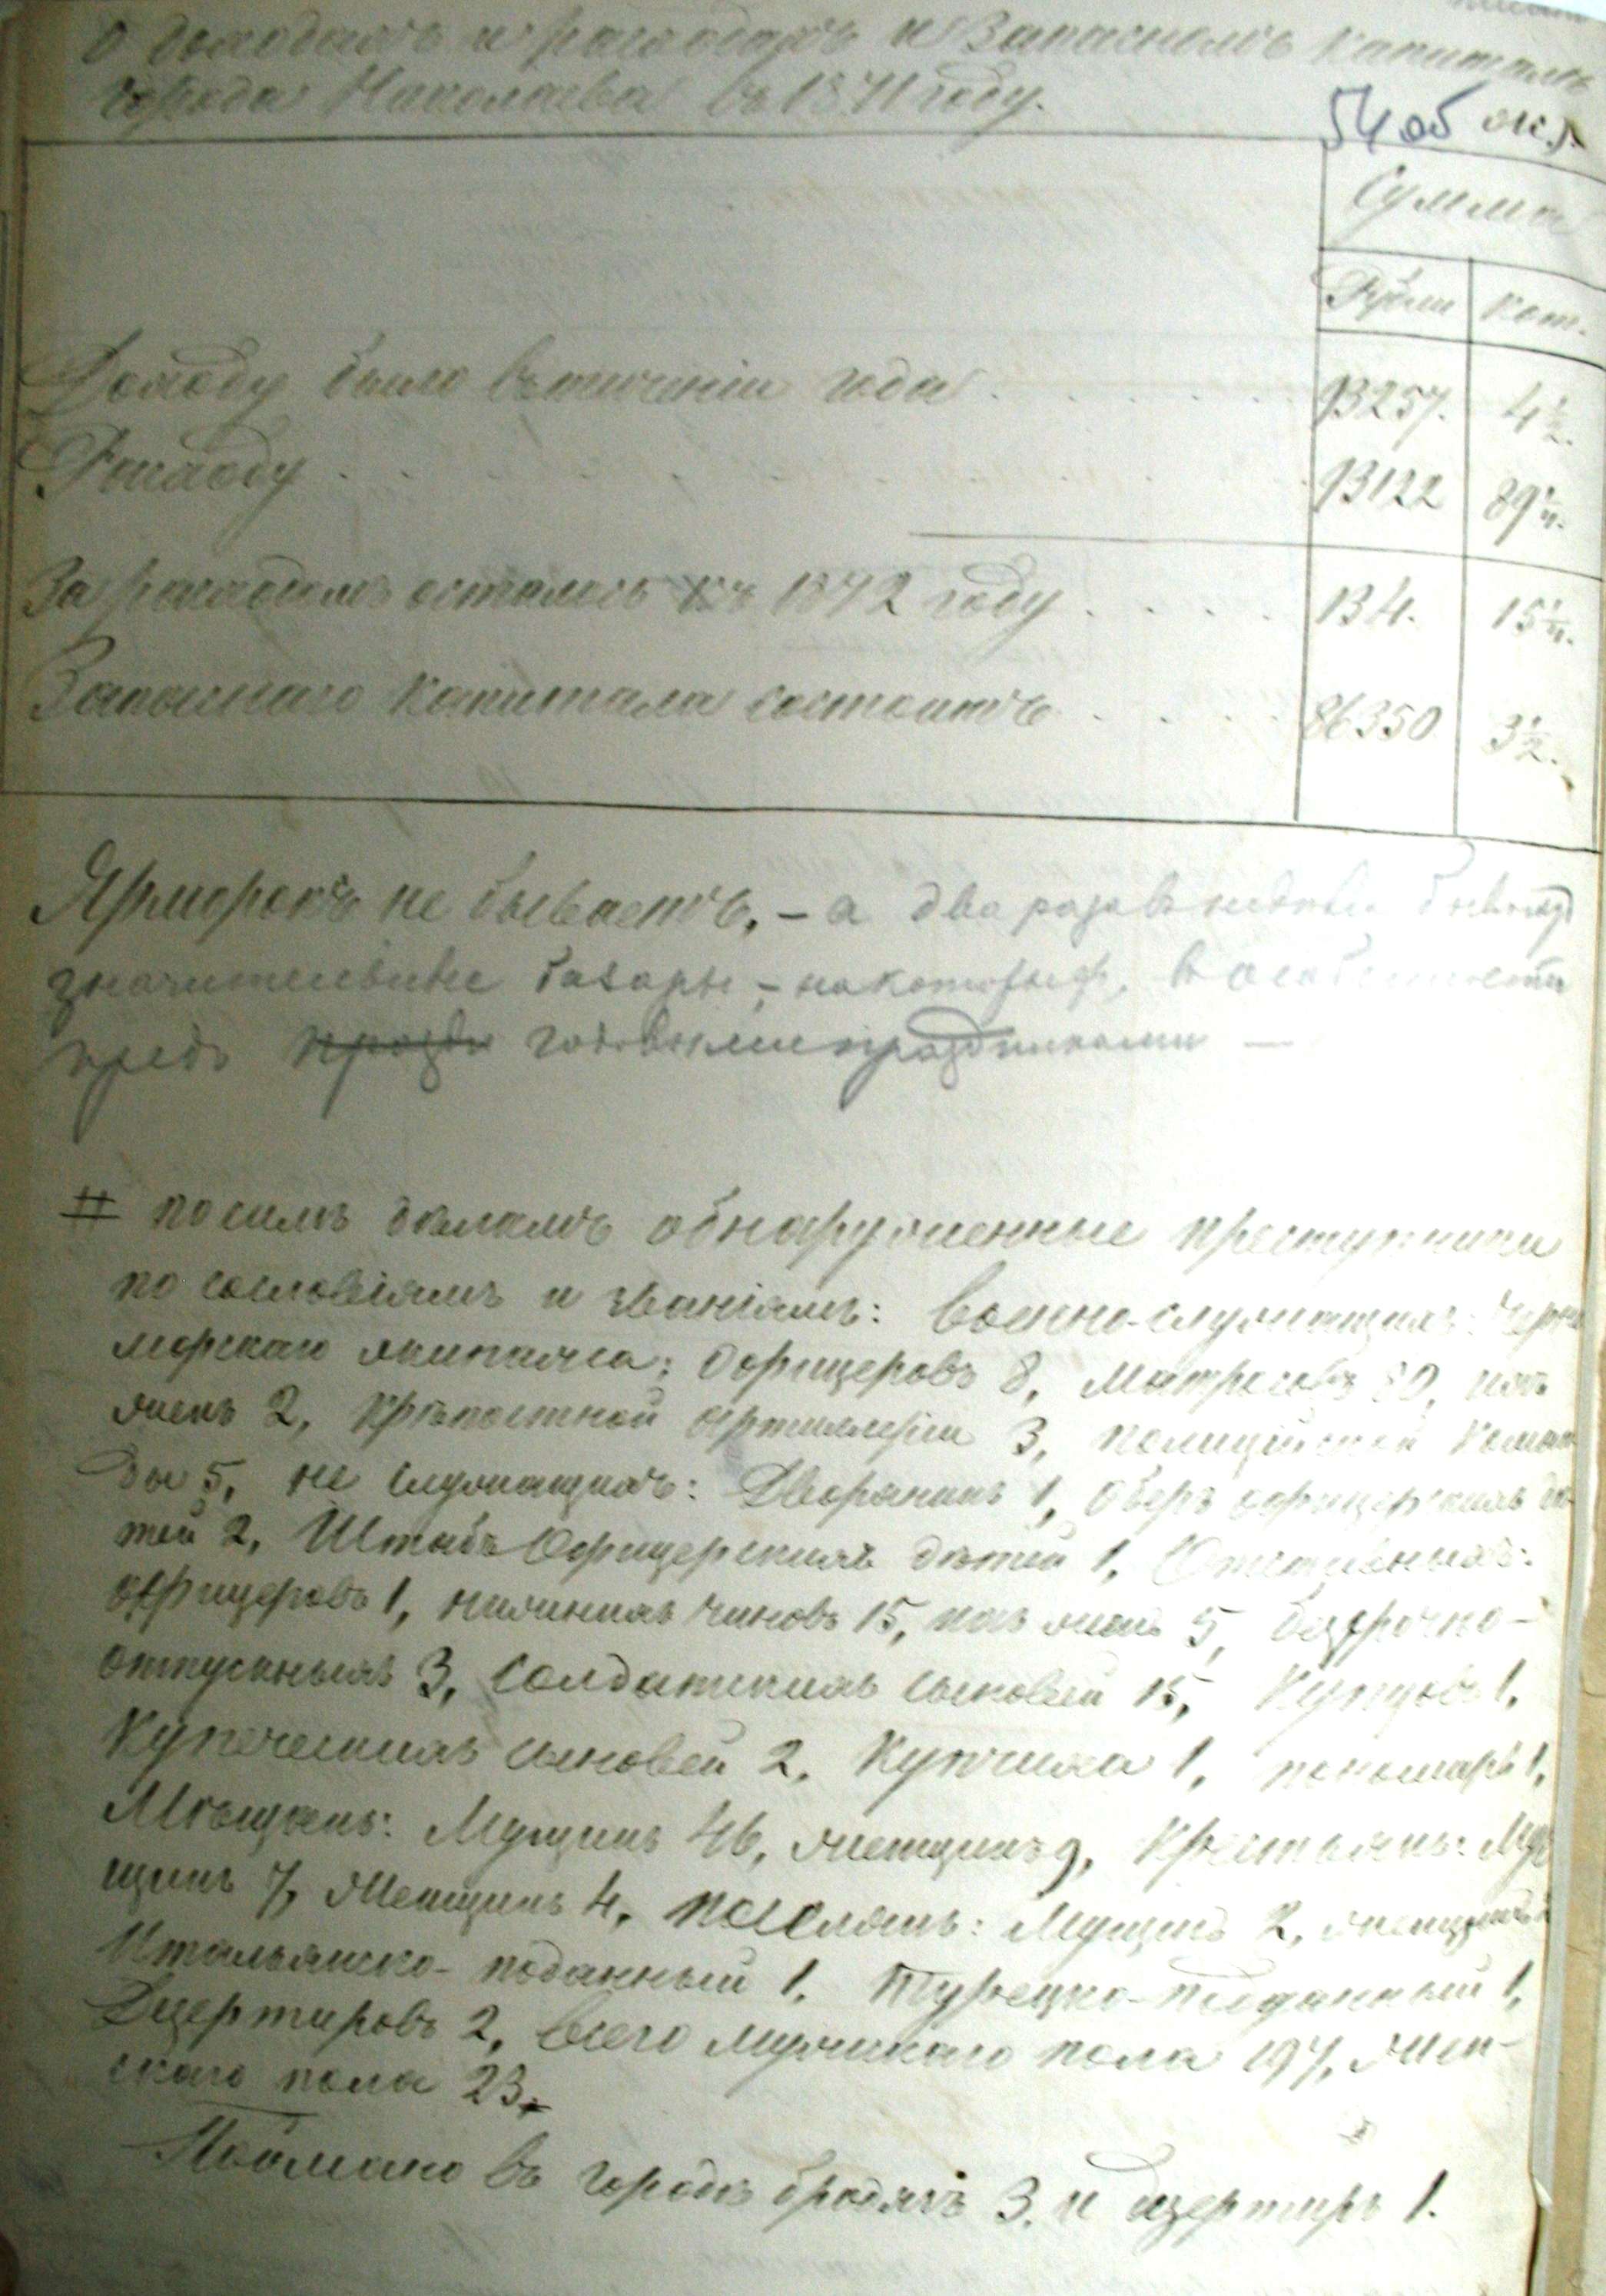 О доходахъ и расходахъ и Запасномъ капиталѣ
города Николаева въ 1871 году.
54 об
Сумма
Рубли Коп.
Доходу было втеченіи года 93257. 4½.
Расходу 93122 89¼.
За расходомъ осталось къ 1872 году 134. 15¼.
Запаснаго Капитала состоитъ 86350 3½.
Ярморокъ не бываетъ, – а два раза в недѣлю бывают
значительные базары, – на которыхъ, в особенности
предъ празд годовыми праздниками –
# по симъ дѣламъ обнаруженные преступники
по сословіямъ и званіямъ: Военно-служащихъ: Черно
морскаго экипажа: Офицеровъ 8, Матросовъ 80, ихъ
женъ 2, Крѣпостной артиллеріи 3, полицейской Коман
ды 5, не служащихъ: Дворянинъ 1, Оберъ офицерскихъ дѣ
тей 2, Штабъ Офицерскихъ дѣтей 1, Отставныхъ:
офицеровъ 1, нижнихъ чиновъ 15, ихъ женъ 5, безсрочно-
отпускныхъ 3, Солдатскихъ сыновей 15, Купцовъ 1,
Купеческихъ сыновей 2, Купчиха 1, пономарь 1,
Мѣщанъ: Мущинъ 46, женщинъ 9, Крестьянъ: Му
щинъ 7, Женщинъ 4, поселянъ: Мущинъ 2, женщинъ
Итальянско-поданный 1, Турецко-подданный 1,
Дезертировъ 2, всего мужскаго пола 197, жен-
скаго пола 23,
Поймано въ городѣ бродягъ 3. и дезертиръ 1.